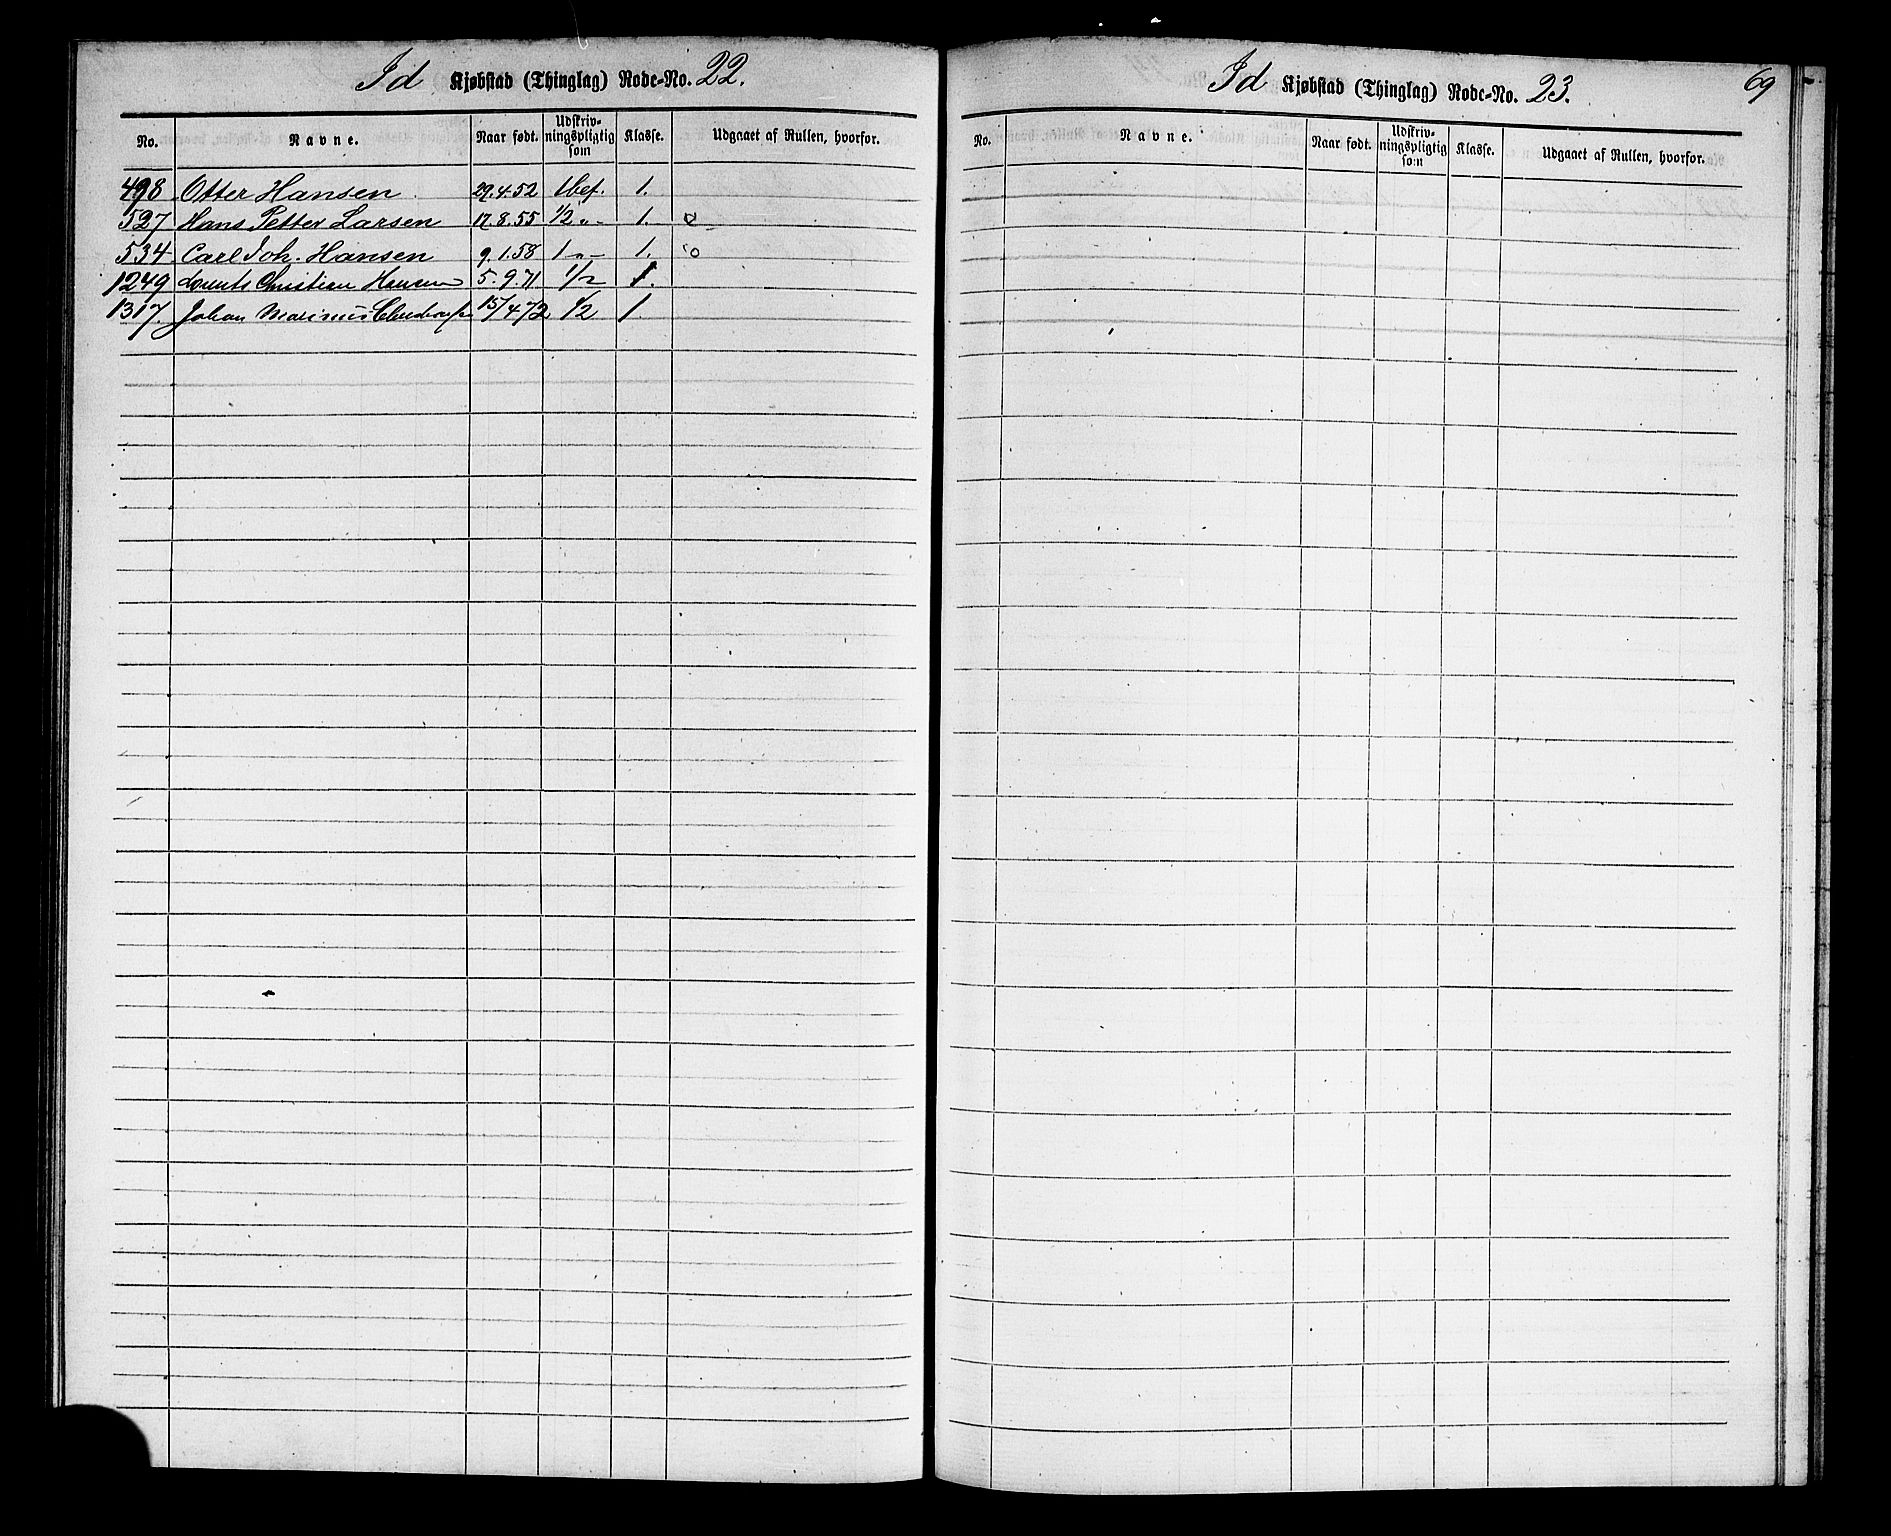 Id Kjøbstad (Thinglag) Rode-No. 22.
No. Navne. Naar født. Udskriv-ningspligtig som Klasse. Udgaaet af Rullen, hvorfor.
498 Otter Hansen 29.4.52 1 bef. 1.
527 Hans Petter Larsen 17.8.55 1/2 "- 1.
534 Carl Joh. Hansen 9.1.58 1 -"- 1.
1249 Lourits Christian Hansen 5.9.71 1/2 1.
1317. Johan Marinus 15/4 72 1/2 1.
Id Kjøbstad (Thinglag) Rode-No. 23.
69
No. Navne. Naar født. Udskriv-ningspligtig som Klasse. Udgaaet af Rullen, hvorfor.